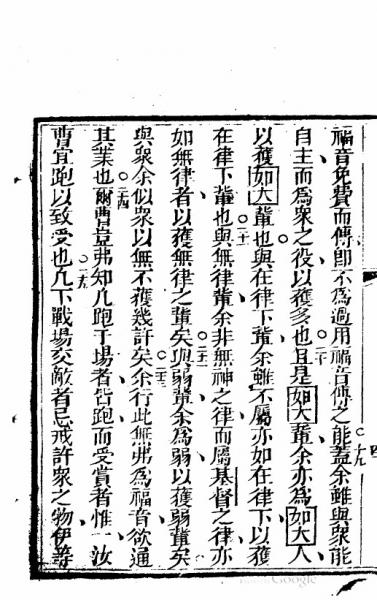 福音免費而傳即不為過用福音傳之能蓋余雖與衆能
十九
自主而為衆之役以獲多也且是如大輩余亦為如大人
二十
以獲如大輩也與在律下輩余雖不屬亦如在律下以獲
在律下輩也與無律輩余非無神之律而屬基督之律亦
二十一
如無律者以獲無律之輩矣與弱輩余為弱以獲弱輩矣
二十二
與衆余似衆以無不獲幾許矣余行此無弗為福音欲通
二十三
其業也爾曹豈弗知凡跑于場者皆跑而受賞者惟一汝
二十四
曹宜跑以致受也凡下戰場交敵者忌戒許衆之物伊等
二十五
Google